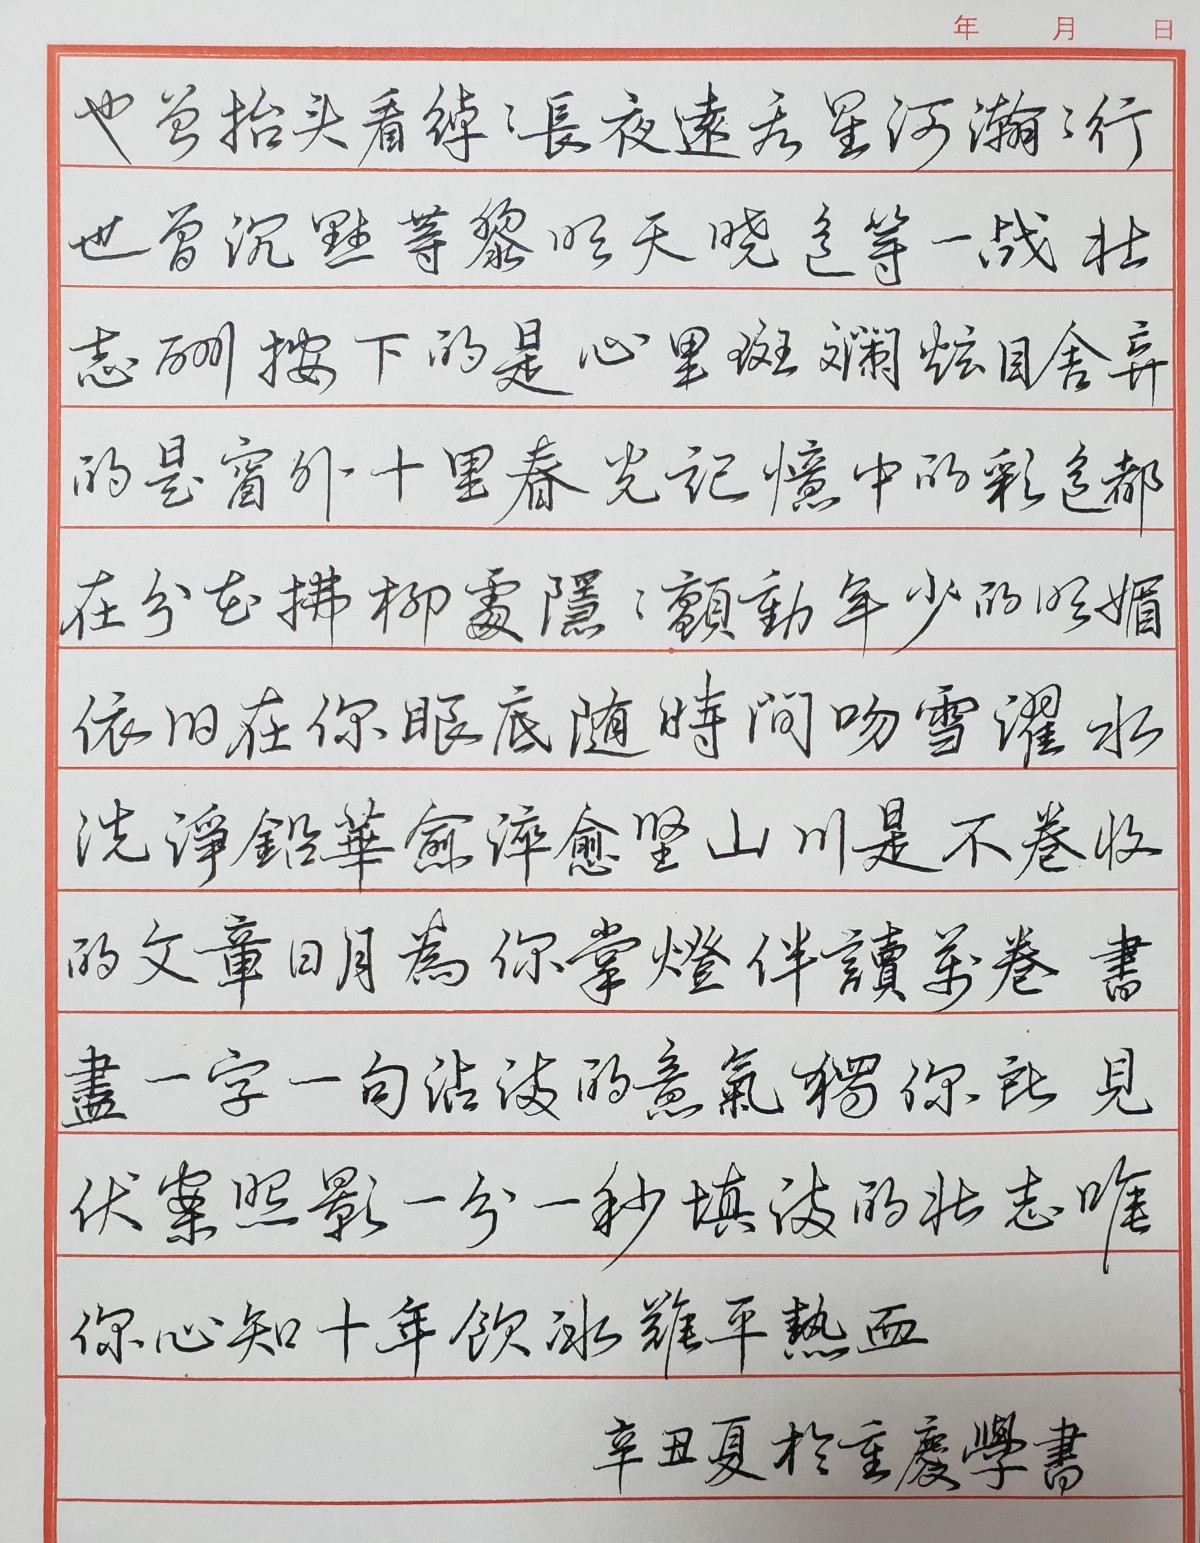 年 月 日
也曾抬头看绰々長夜遠去星河瀚々行
也曾沉默等黎明天晓色等一战壮
志酬按下的是心里斑斓炫目舍弃
的是窗外十里春光記憶中的彩色都
在分花拂柳處隱々顫動年少的明媚
依旧在你眼底随時间吻雪濯水
洗淨鉛華愈淬愈坚山川是不卷收
的文章日月為你掌燈伴讀萬卷書
盡一字一句沾染的意氣獨你能見
伏案照影一分一秒填滿的壮志唯
你心知十年飲冰難平熱血
辛丑夏於重慶學書